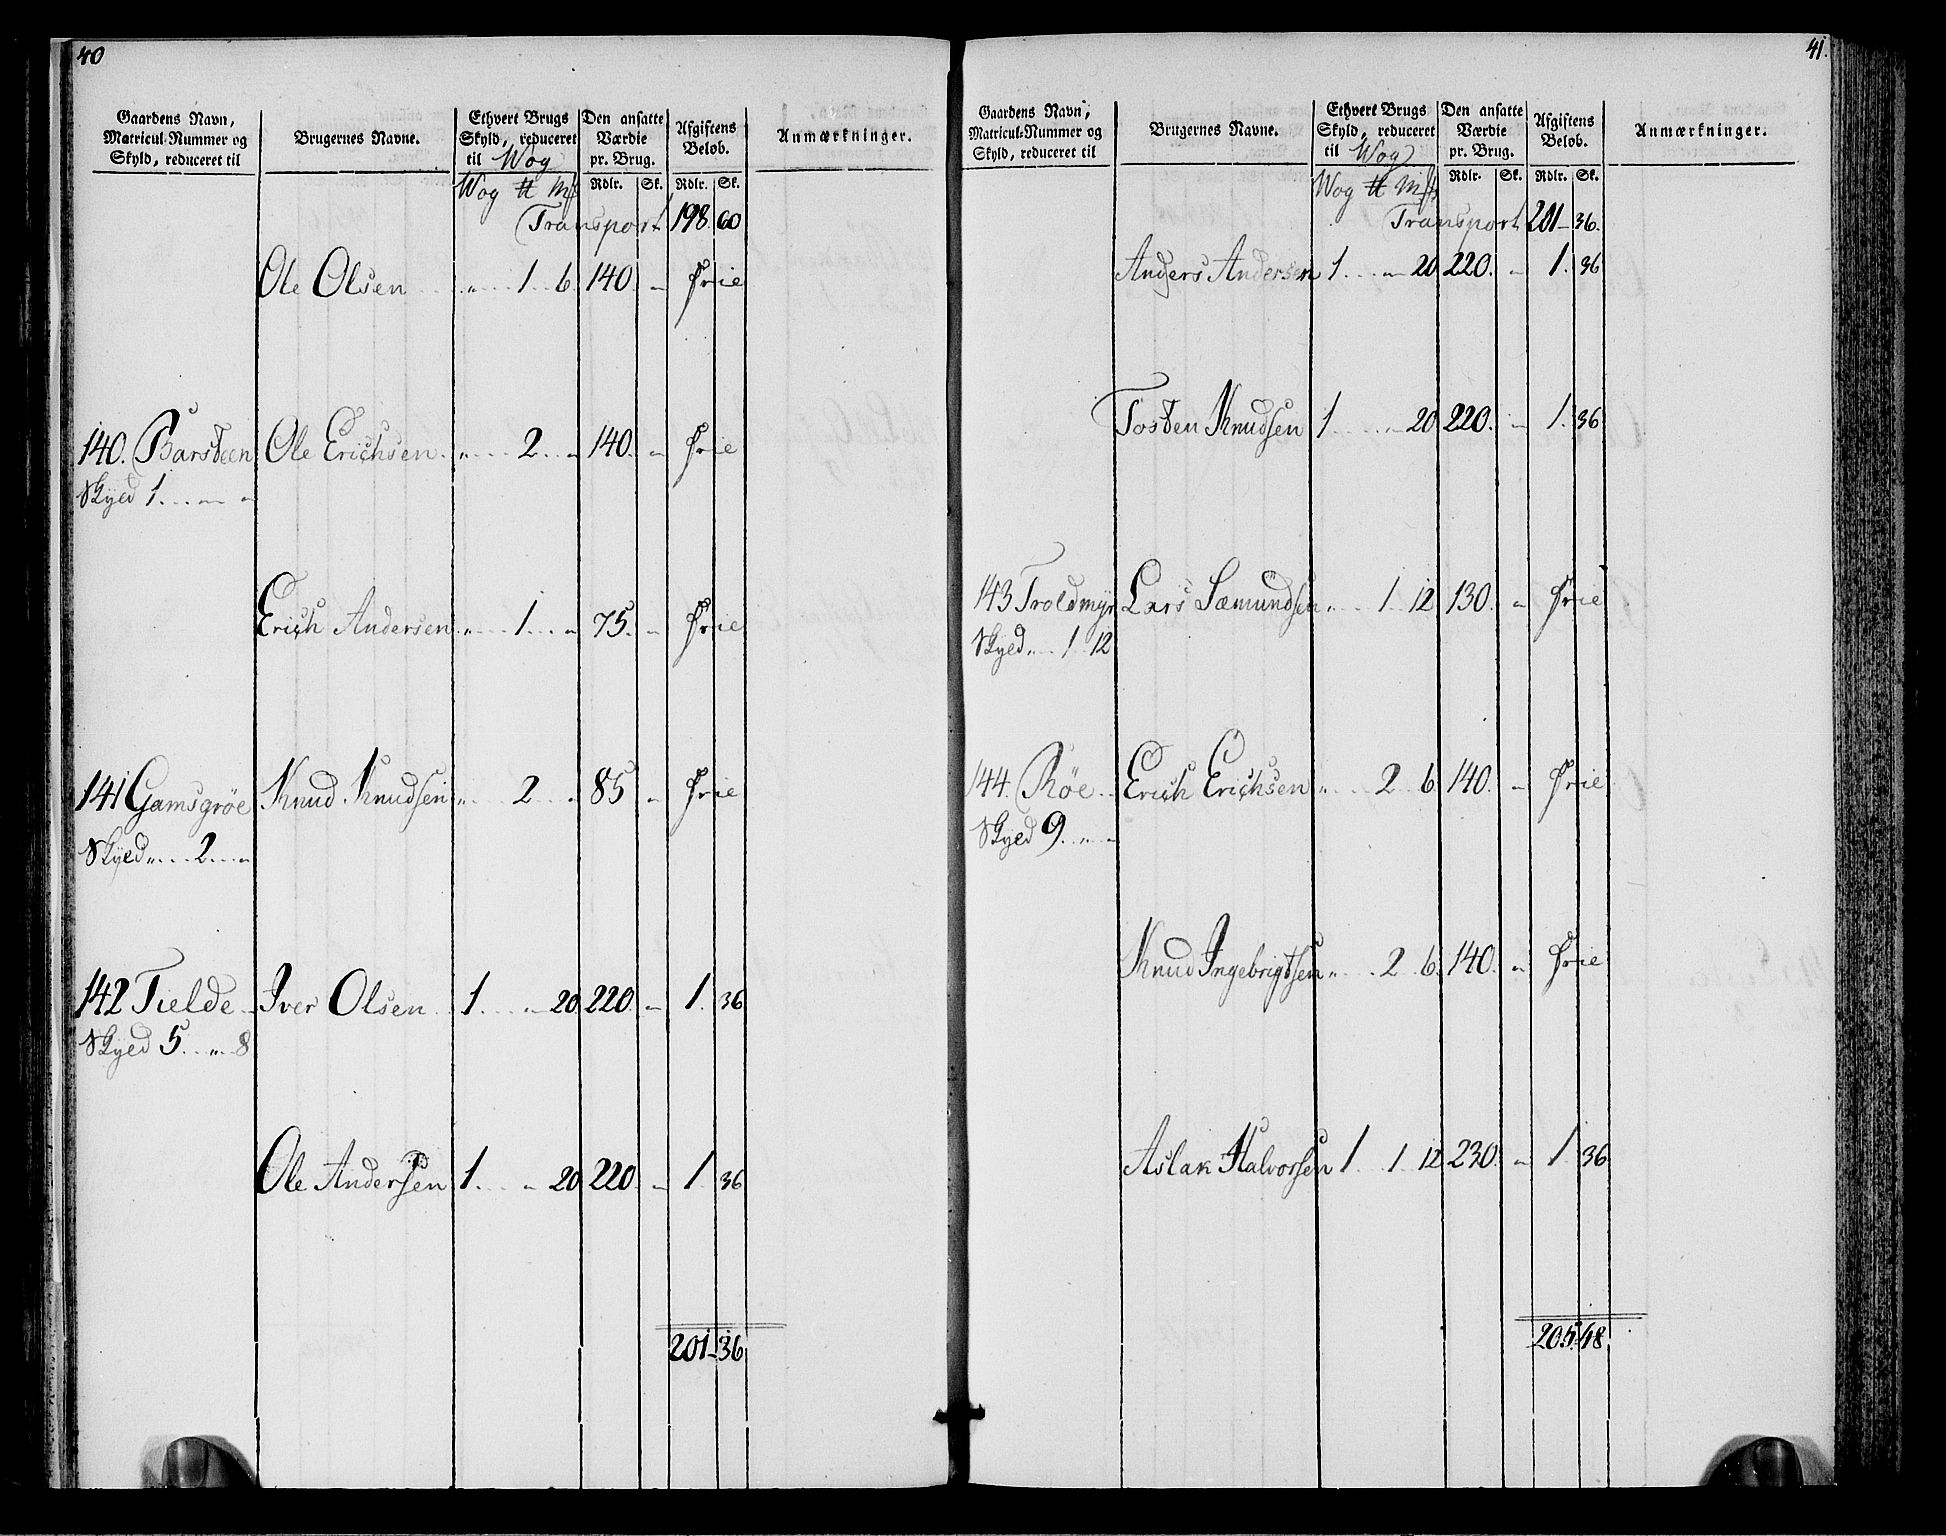 40
Gaardens Navn, Matricul-Nummer og Skyld, reduceret til
Brugernes Navne.
Ethvert Brugs Skyld, reduceret til Wog
Den ansatte Værdie pr. Brug.
Afgiftens Beløb.
Anmærkninger.
Wog ℔ Mk Rdlr. Sk. Rdlr. Sk.
Transport 198. 60
Ole Olsen „ 1 6. 140. „ Frie
140. Barsteen Ole Erichsen „ 2 „ 140. „ Frie
Skyld 1 „ „
Erich Andersen „ 1 „ 75. „ Frie
141 Gamsgrøe Knud Knudsen „ 2 „ 85 „ Frie
Skyld „ 2 „
142 Tielde Iver Olsen 1 „ 20 220. „ 1. 36
Skyld 5 „ 8
Ole Andersen 1 „ 20 220. „ 1. 36
201 36
41.
Gaardens Navn, Matricul-Nummer og Skyld, reduceret til
Brugernes Navne.
Ethvert Brugs Skyld, reduceret til Wog
Den ansatte Værdie pr. Brug.
Afgiftens Beløb.
Anmærkninger.
Wog ℔ Mk Rdlr. Sk. Rdlr. Sk.
Transport 201 36.
Anders Andersen 1 „ 20 220. „ 1. 36
Tosten Knudsen 1 „ 20 220. „ 1. 36
143 Troldmyr Lars Sæmundsen „ 1 12 130. „ Frie
Skyld „ 1 12
144. Røe Erich Erichsen „ 2 6 140. „ Frie
Skyld 9. „ „
Knud Ingebrigtsen „ 2 6 140. „ Frie
Aslak Halvorsen 1 1 12 230. „ 1 36
205. 48